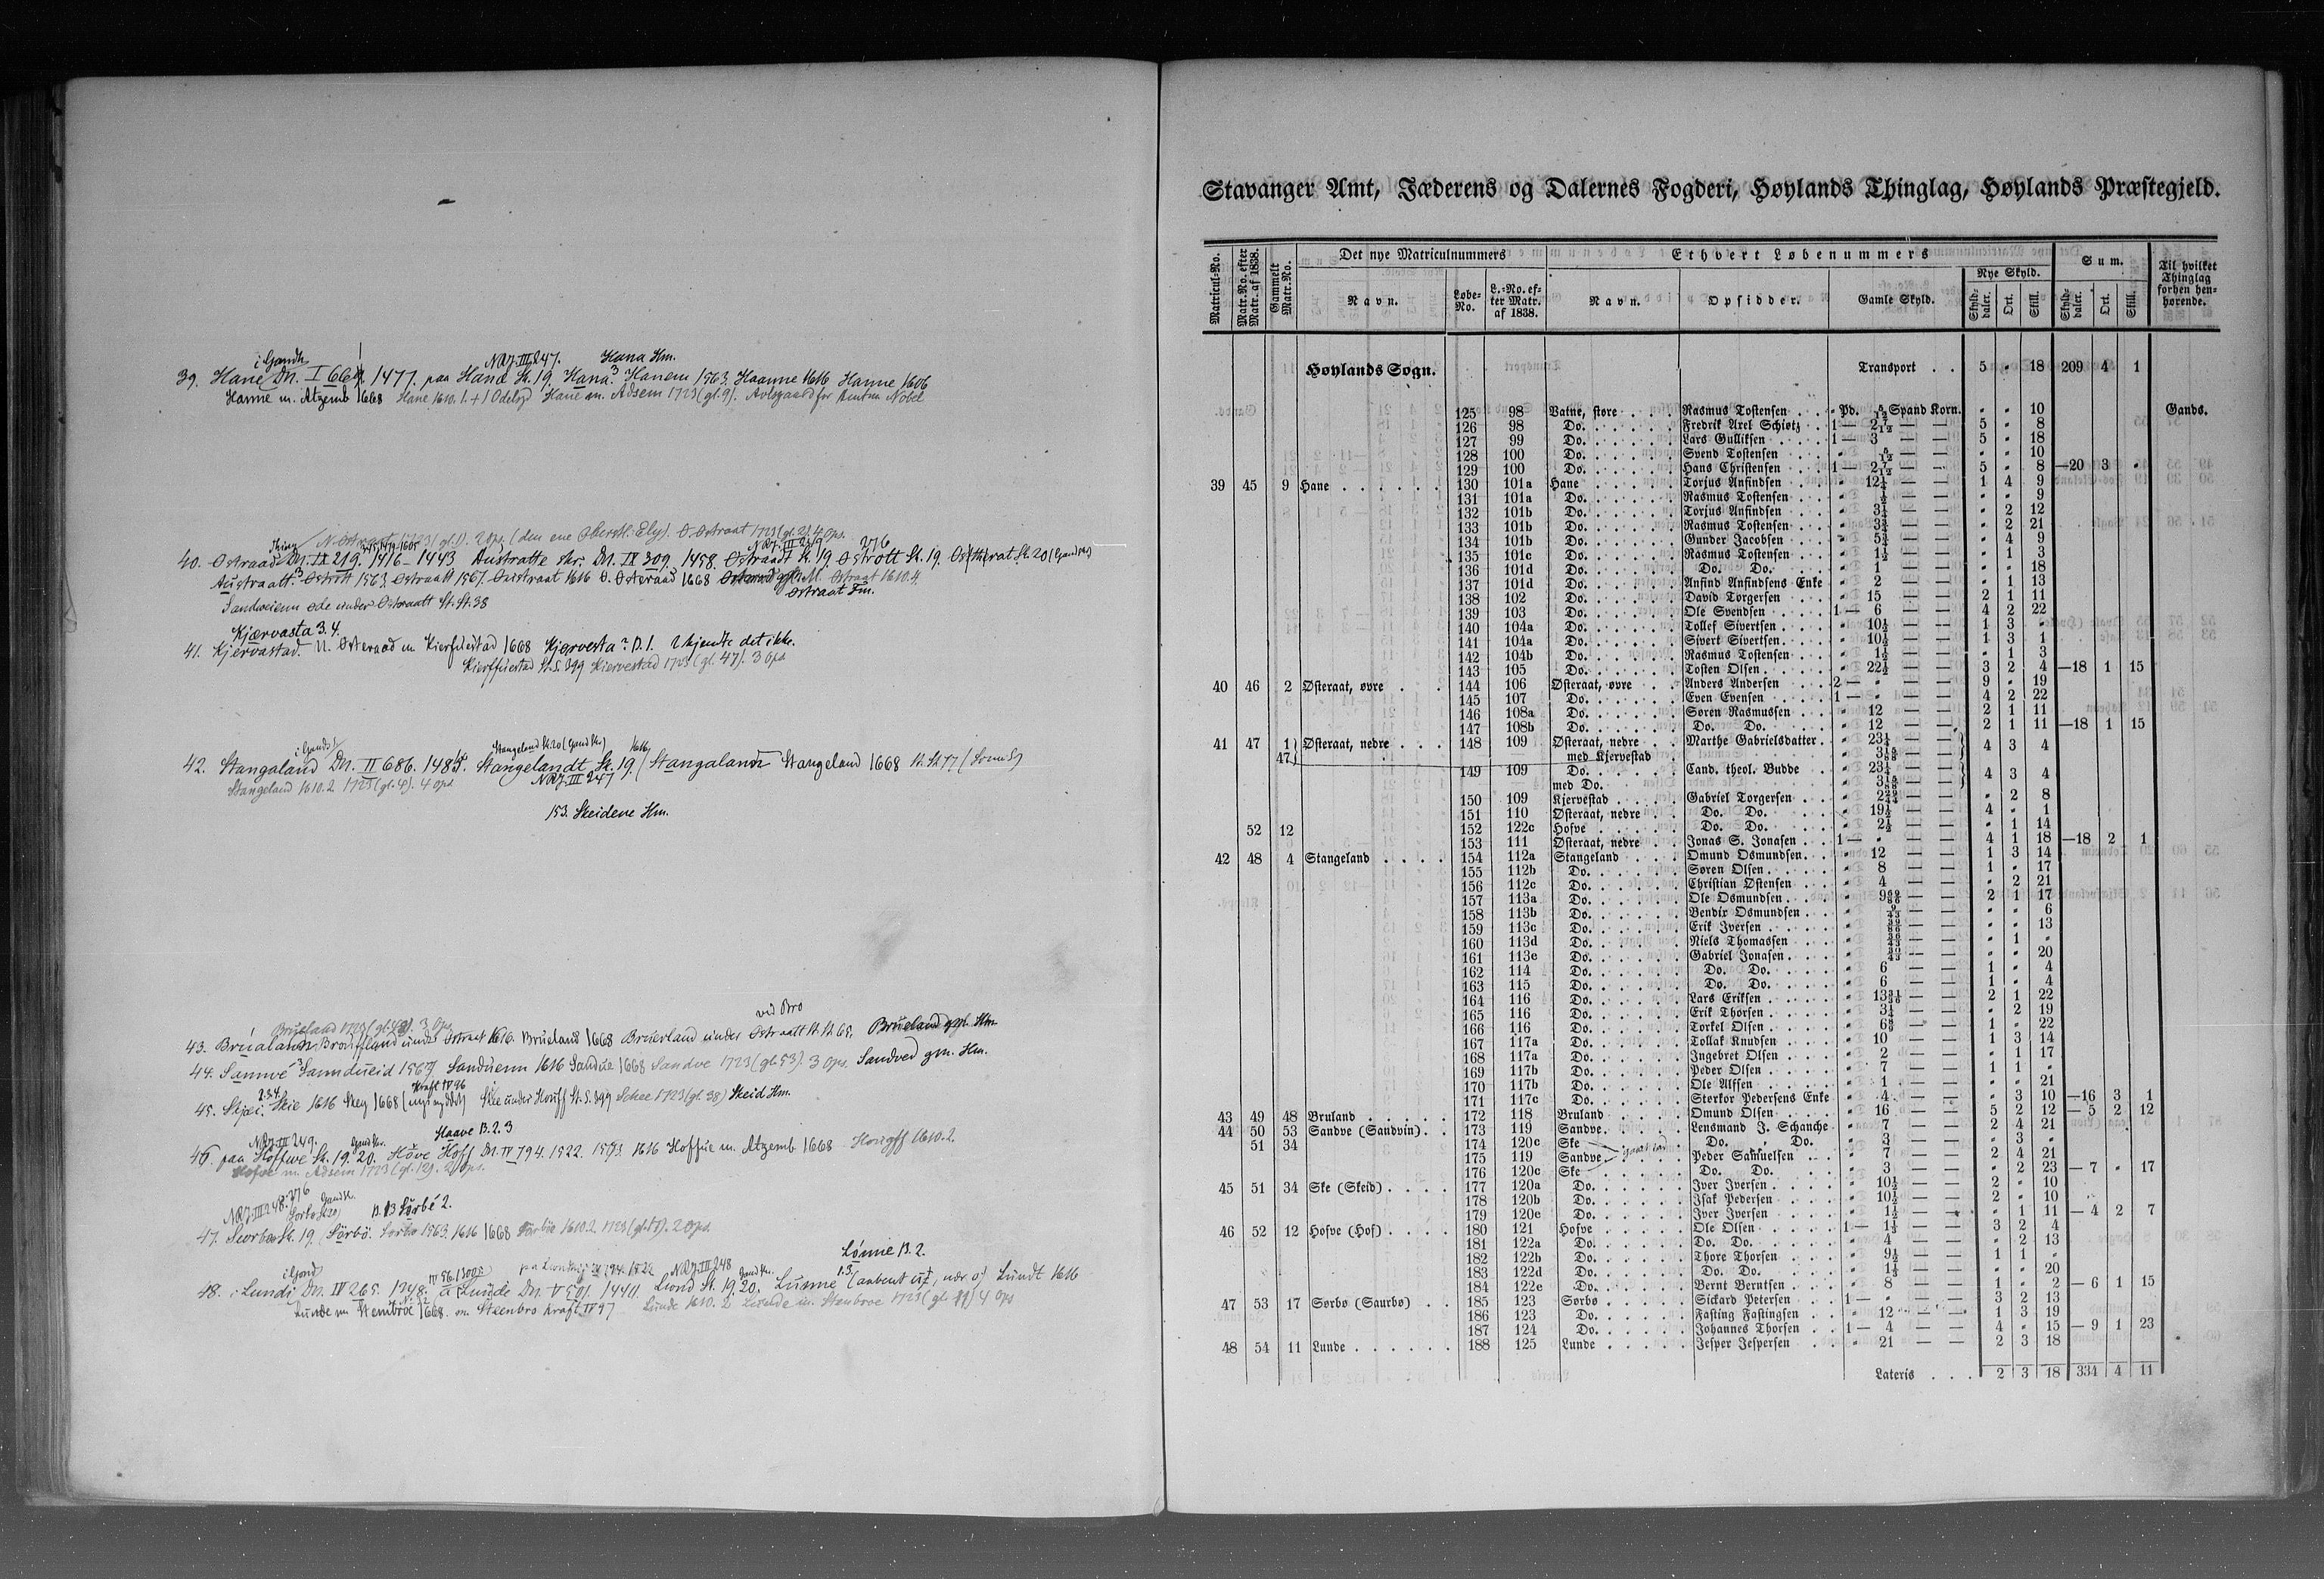 i Gandh NRJ. III 247. Hana Hm.
39. Hane Dn. I 1477. paa Hana St. 19. Hana.³ Hanem 1563. Haanne 1616 Hanne 1606
Hanne m. Atzemb 1668 Hane 1610. 1. + 1 Hane m. Adsem 1723 (gl. 9). Avlsgaard for Nobel
N. Østraat 1723 (gl. 1). 2 Ops. (den ene Oberstl: Ely). O. Østraat 1723 (gl. 2). 4 Ops.
40. Ostraad Dn. IX 219. 1416-1443 Austratte skr. Dn. IV 309. 1458. Ostraadt St. 19. Ostrott St. 19.
Austraatt.³ Østrtt 1563. Østraatt 1567. 1616 O. Osteraad 1668 Ostraat 1610. 4.
Østraat Fm.
øde under Østraatt St. 38
Kjærvasta 3. 4.
41. Kjervastad. N. Osteraad m 1668 Kjervesta? B. 1. kjendte det ikke.
Kiervestad 1723 (gl. 47). 3 Ops
i Gands Stangeland St. 20 (Gand Sk.) 1616
42. Stangaland Dn. II 686. 1485. Stangelandt St. 19. Stangaland Stangeland 1668
Stangeland 1610. 2 1723 (gl. 4). 4 Ops NRJ. III 247
153. Skeidene Hm.
ved Bro
Brueland 1723 3 Ops
43. Brualand under Østraat 1616. Brueland 1668 Bruerland under Østraatt Brueland Hm.
44. Sannve³ 1567 1616 Sandue 1668 Sandve 1723 (gl. 53). 3 Ops. Sandved gm. Hm.
2.3.4. Kraft IV 96
45. Skjei. Skie 1616 Skey 1668 Skee under 399 Schee 1723 (gl. 38) Skeid Hm.
NRJ. III 249. Gand Sk. Haave B. 2. 3
46. paa Hoffwe St. 19. 20. Hove Hoff Dn. IV 794. 1522. 1563 1616 Hoffue m. Atzemb 1668 1610. 2.
Hofve m. Adsem 1723 (gl. 12). 2 Ops.
NRJ. III 248. 276 Gand Sk.
B. 13 Sørbé 2.
47. St. 19. Sørbö. 1563. 1616 1668 1610. 2. 1723 (gl. 17). 2 Ops
Lónne B. 2.
i Gand NRJ. III 248 Gand Sk. 1.3.
48. i Lundi Dn. IV 265. a Lunde Dn. V 501. 1440. Lund St. 19. 20. Lunne Lundt 1616
Lunde m Stenbroe 1668. m Steenbro Kraft IV 97 Lunde 1610. 2 Lunde m. Stenbroe 1723 4 Ops
Stavanger Amt, Jæderens og Dalernes Fogderi, Høylands Thinglag, Høylands Præstegjeld.
Matricul-No. Matr.No. efter Matr. af 1838. Gammelt Matr.No. Det nye Matriculnummers Ethvert Løbenummers Sum. Til hvilket Thinglag forhen henhørende.
Navn. Løbe-No. L.-No. efter Matr. af 1838. Navn. Opsidder. Gamle Skyld. Nye Skyld. Skylddaler. Ort. Skill. Skylddaler. Ort. Skill.
Høylands Sogn. Transport . . 5 " 18 209 4 1
125 98 Vatne, store . . . Rasmus Tostensen . . . " Pd. 5/12 Spand Korn. " " 10 Gands.
126 98 Do. Fredrik Axel Schiøtz . 1 — 2 7/12 — — 5 " 8
127 99 Do. Lars Gulliksen . . . 1 — 3 — — 5 " 18
128 100 Do. Svend Tostensen . . . " 5/12 — — " " 10
129 100 Do. Hans Christensen . . . 1 — 2 7/12 — — 5 " 8 —20 3 "
39 45 9 Hane . . . 130 101a Hane . . . Torjus Anfindsen . . " 12 1/4 — — 1 4 9
131 101a Do. Rasmus Tostensen . . . " 1/2 — — " " 9
132 101b Do. Torjus Anfindsen . . . " 3 1/4 — — " 2 12
133 101b Do. Rasmus Tostensen . . . " 3 3/4 — — " 2 21
134 101b Do. Gunder Jacobsen . . . " 5 1/4 — — " 4 9
135 101c Do. Rasmus Tostensen . . . " 1 1/2 — — " 1 3
136 101d Do. Do. Do. . . . " 1 — — " " 18
137 101d Do. Anfind Anfindsens Enke " 2 — — " 1 13
138 102 Do. David Torgersen . . . " 15 — — 2 1 11
139 103 Do. Ole Svendsen . . . 1 — 6 — — 4 2 22
140 104a Do. Tollef Sivertsen . . . " 10 1/2 — — 1 3 "
141 104a Do. Sivert Sivertsen . . . " 10 1/2 — — 1 3 1
142 104b Do. Rasmus Tostensen . . . " 1 1/2 — — " 1 3
143 105 Do. Tosten Olsen . . . " 22 1/2 — — 3 2 4 —18 1 15
40 46 2 Østeraat, øvre . . 144 106 Østeraat, øvre . . Anders Andersen . . . 2 — " — — 9 " 19
145 107 Do. Even Evensen . . . 1 — " — — 4 2 22
146 108a Do. Søren Rasmussen . . . " 12 — — 2 1 11
147 108b Do. Do. Do. . . . " 12 — — 2 1 11 —18 1 15
41 47 1 Østeraat, nedre . . . 148 109 Østeraat, nedre . . Marthe Gabrielsdatter . " 23 1/4 — — 4 3 4
47 med Kjervestad . " 3 15/88 — —
149 109 Do. Cand. theol. Budde . . " 23 1/4 — — 4 3 4
med Do. " 3 15/88 — —
150 109 Kjervestad . . . Gabriel Torgersen . . " 2 29/44 — — " 2 8
151 110 Østeraat, nedre . . Do. Do. . . . " 19 1/2 — — 4 " 1
52 12 152 122c Hofve . . . Do. Do. . . . " 2 1/2 — — " 1 14
153 111 Østeraat, nedre . . Jonas S. Jonasen . . 1 — " — — 4 1 18 —18 2 1
42 48 4 Stangeland . . . 154 112a Stangeland . . . Omund Osmundsen . . " 12 — — 1 3 14
155 112b Do. Søren Olsen . . . " 8 — — 1 " 17
156 112c Do. Christian Østensen . . " 4 — — " 2 21
157 113a Do. Ole Osmundsen . . . " 9 62/86 — — 2 1 17
158 113b Do. Bendix Osmundsen . . . " 9/43 — — " " 6
159 113c Do. Erik Iversen . . . " 39/86 — — " " 13
160 113d Do. Niels Thomassen . . . " 36/43 — — " 1 "
161 113e Do. Gabriel Jonasen . . . " 30/43 — — " " 20
162 114 Do. Do. Do. . . . " 6 — — 1 " 4
163 115 Do. Do. Do. . . . " 6 — — 1 " 4
164 116 Do. Lars Eriksen . . . " 13 31/36 — — 2 1 22
165 116 Do. Erik Thorsen . . . " 3 1/4 — — " 2 19
166 116 Do. Torkel Olsen . . . " 6 8/9 — — 1 " 22
167 117a Do. Tollak Knudsen . . . " 10 — — 1 3 14
168 117a Do. Ingebret Olsen . . . " 2 — — " 1 17
169 117b Do. Peder Olsen . . . " 7 — — 1 1 "
170 117b Do. Ole Alfsen . . . " 1 — — " " 21
171 117c Do. Storkor Pedersens Enke " 4 — — " 3 10 —16 3 1
43 49 48 Bruland . . . 172 118 Bruland . . . Omund Olsen . . . " 16 — — 5 2 12 — 5 2 12
44 50 53 Sandve (Sandvin) . . 173 119 Sandve . . . Lensmand J. Schanche " 7 — — 2 4 21
51 34 174 120c Ske Do. " Do. " 3 — — " 3 "
175 119 Sandve Peder Samuelsen . . . " 7 — — 2 4 21
176 120c Ske Do. Do. . . . " 3 — — " 2 23 — 7 " 17
45 51 34 Ske (Skeid) . . . 177 120a Do. Iver Iversen . . . " 10 1/2 — — 2 " 10
178 120b Do. Isak Pedersen . . . " 10 1/2 — — 2 " 10
179 120e Do. Iver Iversen . . . " 1 1/2 — — " 1 11 — 4 2 7
46 52 12 Hofve (Hof) . . . 180 121 Hofve . . . Ole Olsen . . . 1 — 1 1/2 — — 3 2 4
181 122a Do. Do. Do. . . . " 4 — — " 2 13
182 122b Do. Thore Thorsen . . . " 9 1/2 — — 1 1 "
183 122d Do. Do. Do. . . . " 1 1/3 — — " " 20
184 122e Do. Bernt Berntsen . . . " 8 — — 1 " 2 — 6 1 15
47 53 17 Sørbø (Saurbø) . . 185 123 Sørbø . . . Sickard Petersen . . . 1 — " — — 3 2 13
186 123 Do. Fasting Fastingsen . . " 12 — — 1 3 19
187 124 Do. Johannes Thorsen . . 1 — 4 — — 4 " 15 — 9 1 23
48 54 11 Lunde . . . 188 125 Lunde . . . Jesper Jespersen . . . " 21 — — 2 3 18
Lateris . . . 2 3 18 334 4 11